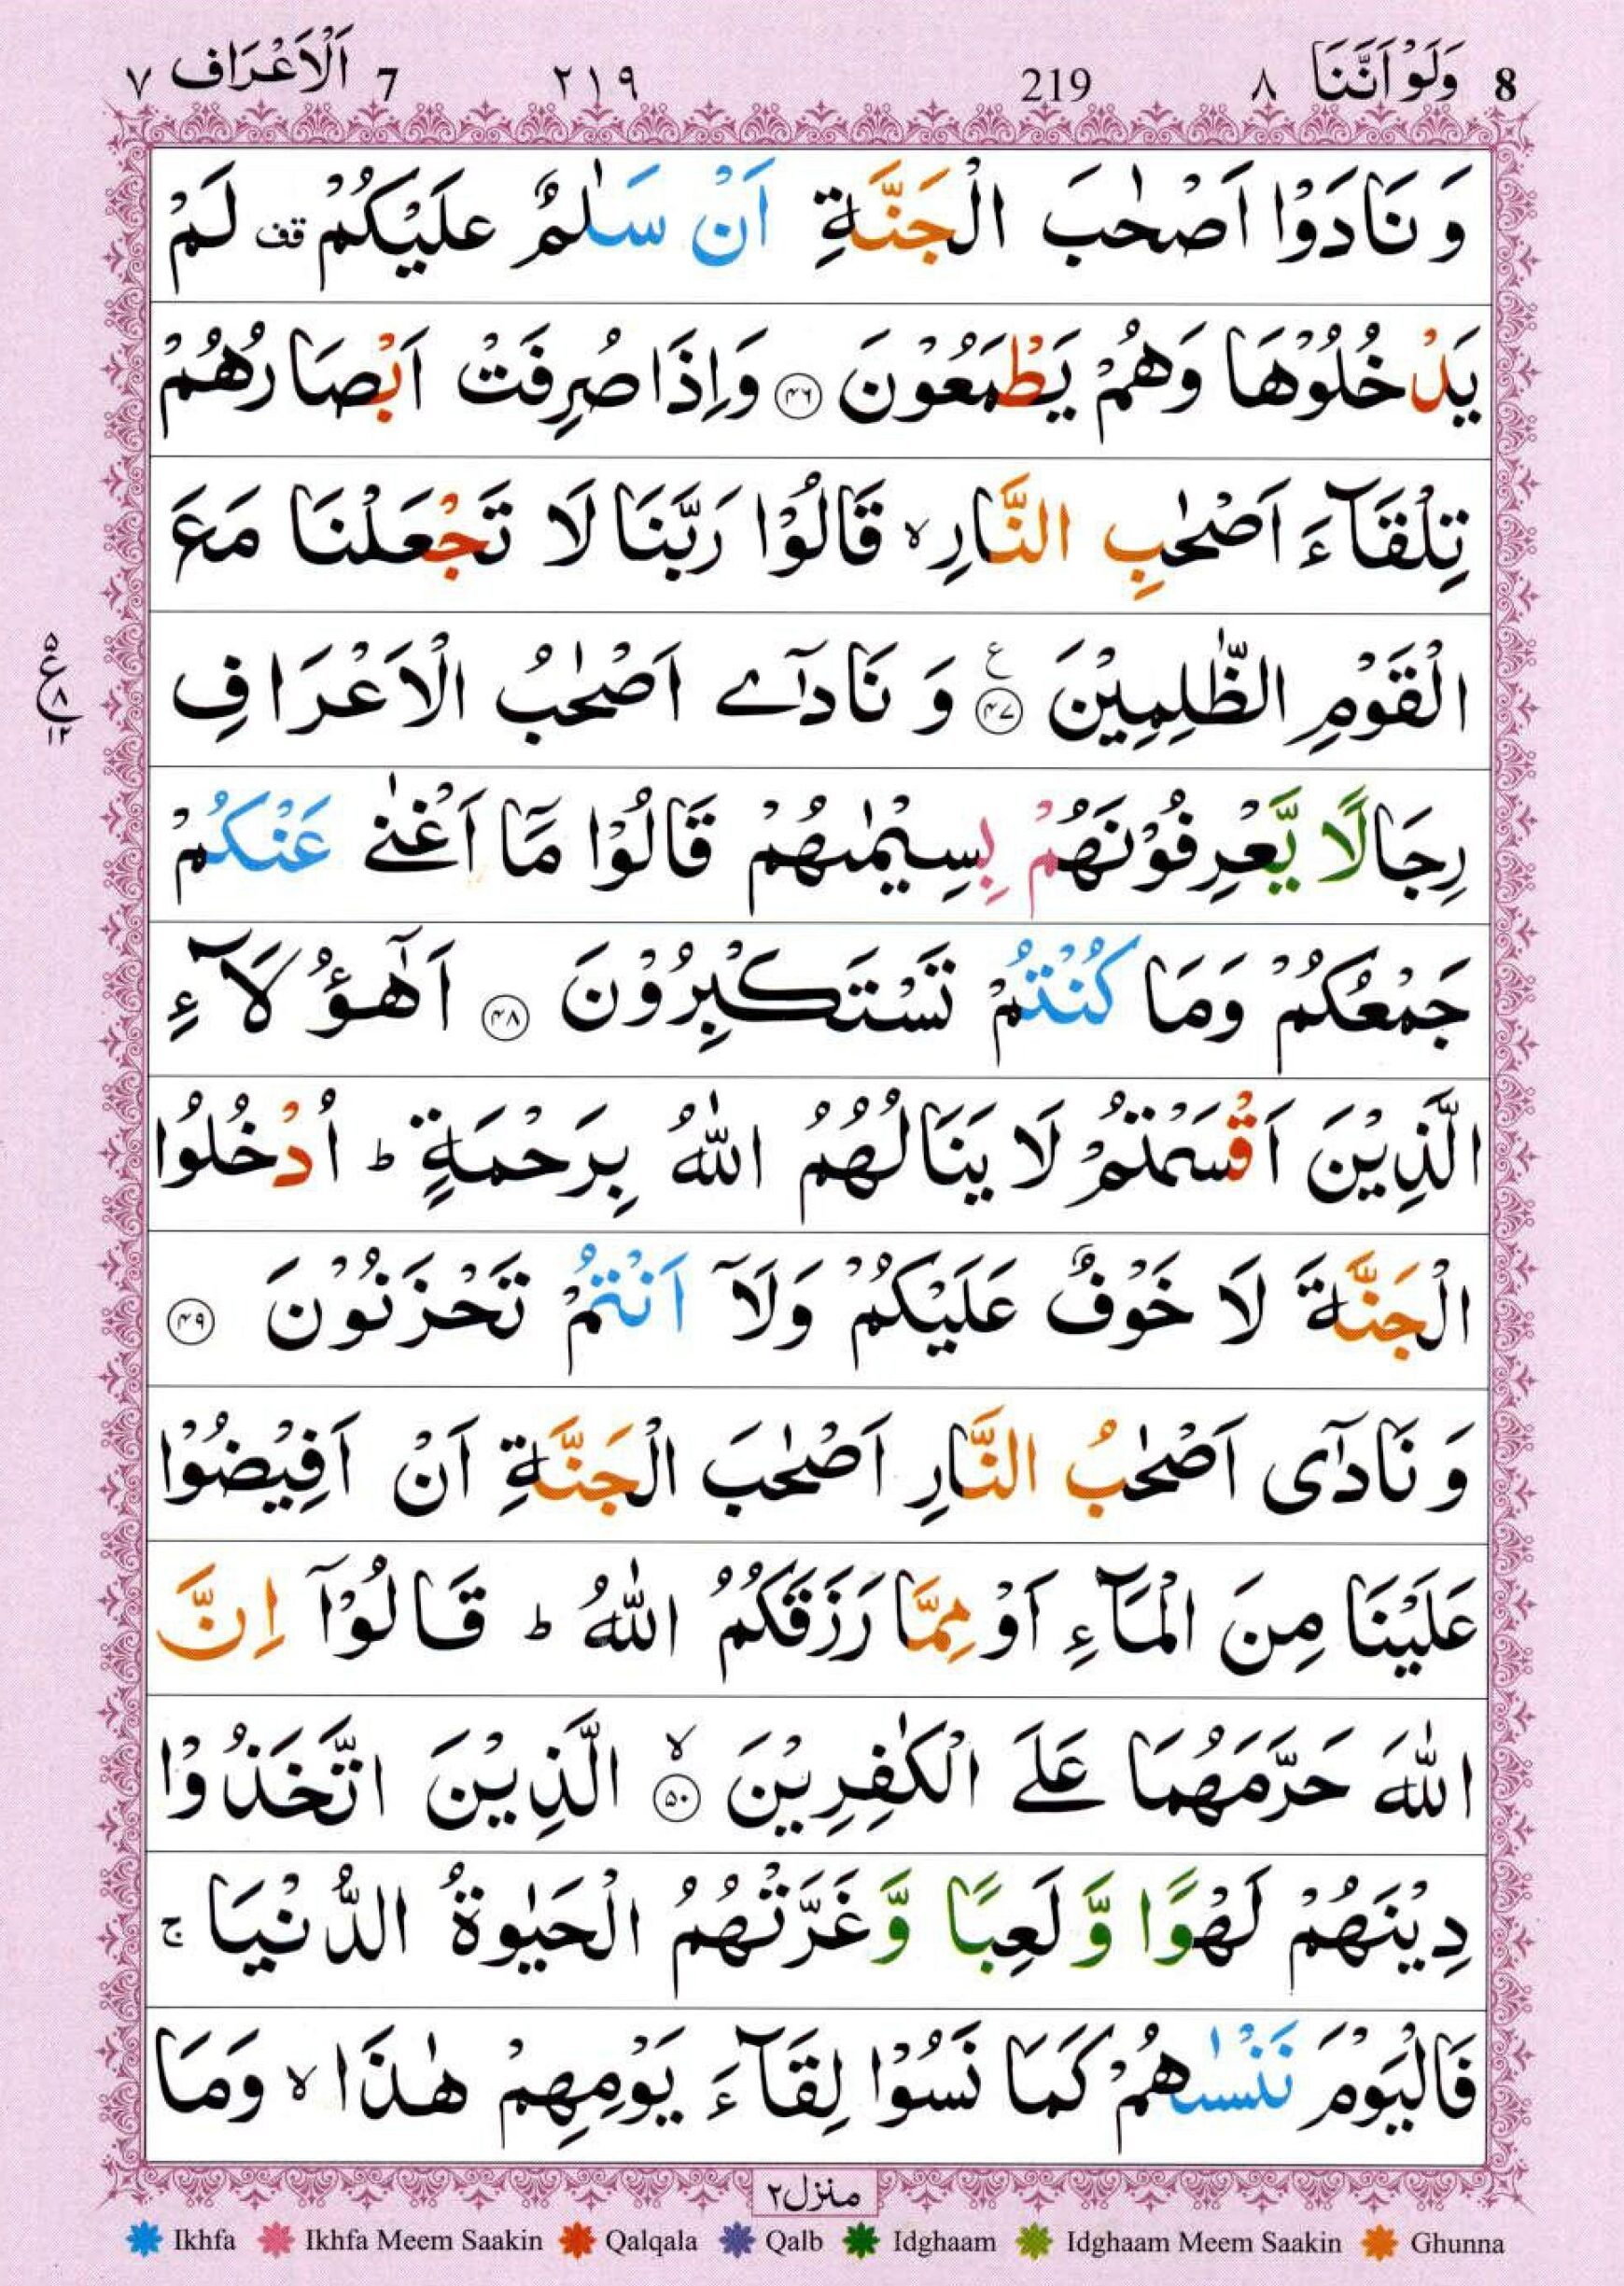 اَلْاَعْرَاف ٧ 7 ٢١٩ 219 وَلَوْ اَنَّنَا ٨ 8
وَ نَادَوْا اَصْحٰبَ الْجَنَّةِ اَنْ سَلٰمٌ عَلَيْكُمْ قف لَمْ
يَدْخُلُوْهَا وَهُمْ يَطْمَعُوْنَ ۴۶ وَاِذَا صُرِفَتْ اَبْصَارُهُمْ
تِلْقَآءَ اَصْحٰبِ النَّارِ ۙ قَالُوْا رَبَّنَا لَا تَجْعَلْنَا مَعَ
الْقَوْمِ الظّٰلِمِيْنَ ۴۷ ع وَ نَادٰٓے اَصْحٰبُ الْاَعْرَافِ
۵ ع ٨ ١٢
رِجَالًا يَّعْرِفُوْنَهُمْ بِسِيْمٰىهُمْ قَالُوْا مَآ اَغْنٰے عَنْكُمْ
جَمْعُكُمْ وَمَا كُنْتُمْ تَسْتَكْبِرُوْنَ ۴۸ اَهٰٓؤُلَآءِ
الَّذِيْنَ اَقْسَمْتُمْ لَا يَنَالُهُمُ اللّٰهُ بِرَحْمَةٍ ؕ اُدْخُلُوا
الْجَنَّةَ لَا خَوْفٌ عَلَيْكُمْ وَلَآ اَنْتُمْ تَحْزَنُوْنَ ۴۹
وَ نَادٰٓى اَصْحٰبُ النَّارِ اَصْحٰبَ الْجَنَّةِ اَنْ اَفِيْضُوْا
عَلَيْنَا مِنَ الْمَآءِ اَوْ مِمَّا رَزَقَكُمُ اللّٰهُ ؕ قَالُوْٓا اِنَّ
اللّٰهَ حَرَّمَهُمَا عَلَے الْكٰفِرِيْنَ ۵۰ ۙ الَّذِيْنَ اتَّخَذُوْا
دِيْنَهُمْ لَهْوًا وَّ لَعِبًا وَّ غَرَّتْهُمُ الْحَيٰوةُ الدُّنْيَا ۚ
فَالْيَوْمَ نَنْسٰىهُمْ كَمَا نَسُوْا لِقَآءَ يَوْمِهِمْ هٰذَا ۙ وَمَا
منزل ٢
Ikhfa Ikhfa Meem Saakin Qalqala Qalb Idghaam Idghaam Meem Saakin Ghunna